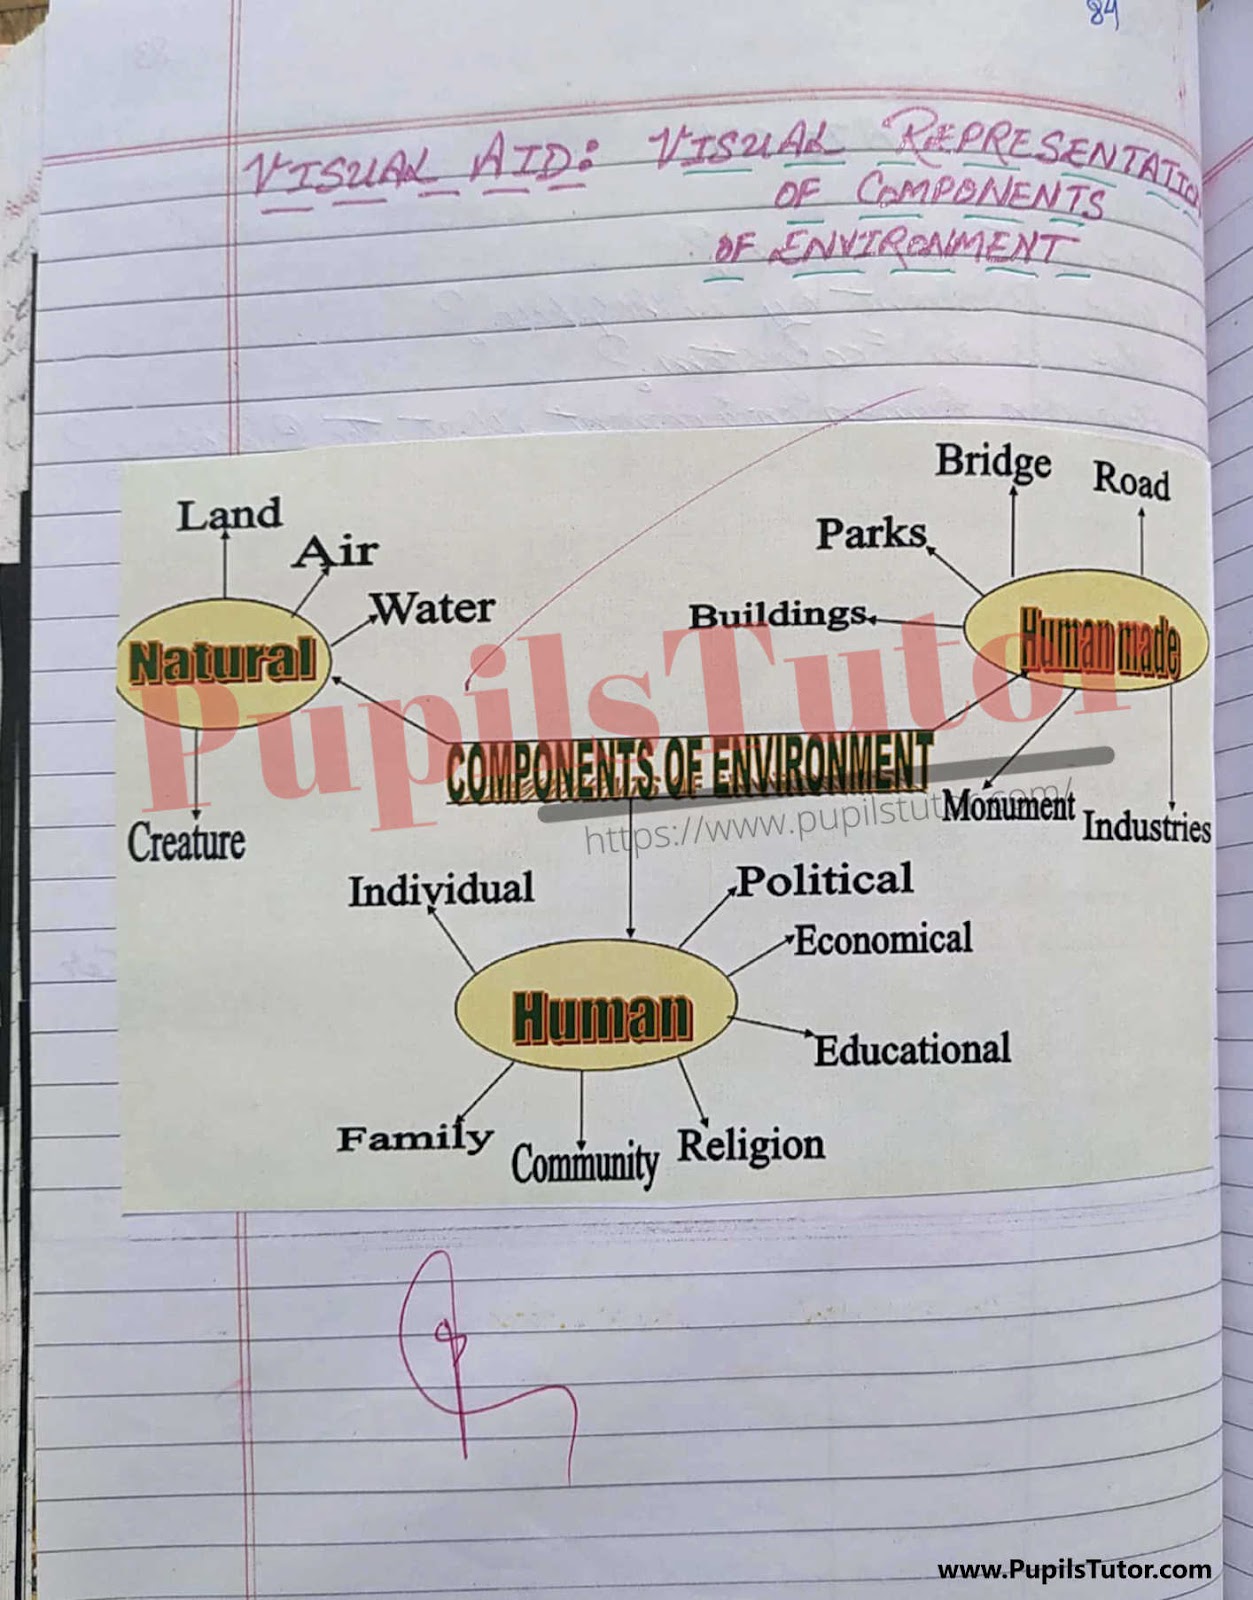 84
VISUAL AID: VISUAL REPRESENTATION
OF COMPONENTS
OF ENVIRONMENT
Bridge
Road
Land
Parks
Air
Water
Buildings
Human made
Natural
PupilsTutor
COMPONENTS OF ENVIRONMENT
https://www.pupilstutor.com/
Monument
Industries
Creature
Individual
Political
Economical
Human
Educational
Family
Community
Religion
www.PupilsTutor.com